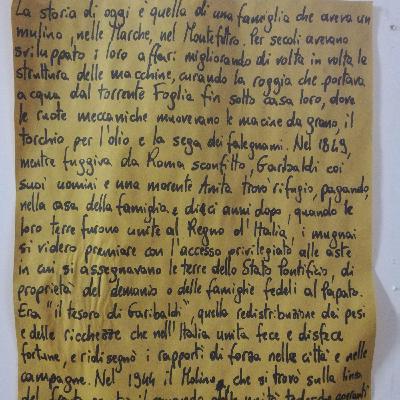 La storia di oggi è quella di una famiglia che aveva un
mulino, nelle Marche, nel Montefeltro. Per secoli avevano
sviluppato i loro affari migliorando di volta in volta la
struttura delle macchine, curando la roggia che portava
acqua dal torrente Foglia fin sotto casa loro, dove
le ruote meccaniche muovevano le macine da grano, il
torchio per l'olio e la sega dei falegnami. Nel 1849,
mentre fuggiva da Roma sconfitto, Garibaldi coi
suoi uomini e una morente Anita trovò rifugio, pagando,
nella casa della famiglia e dieci anni dopo, quando le
loro terre furono unite al Regno d'Italia, i mugnai
si videro premiare con l'accesso privilegiato alle aste
in cui si assegnavano le terre dello Stato Pontificio, di
proprietà del demanio o delle famiglie fedeli al Papato.
Era "il tesoro di Garibaldi", quella redistribuzione dei pesi
e delle ricchezze che nell'Italia unita fece e disfece
fortune, e ridisegnò i rapporti di forza nelle città e nelle
campagne. Nel 1944 il Molino, che si trovò sulla linea
del